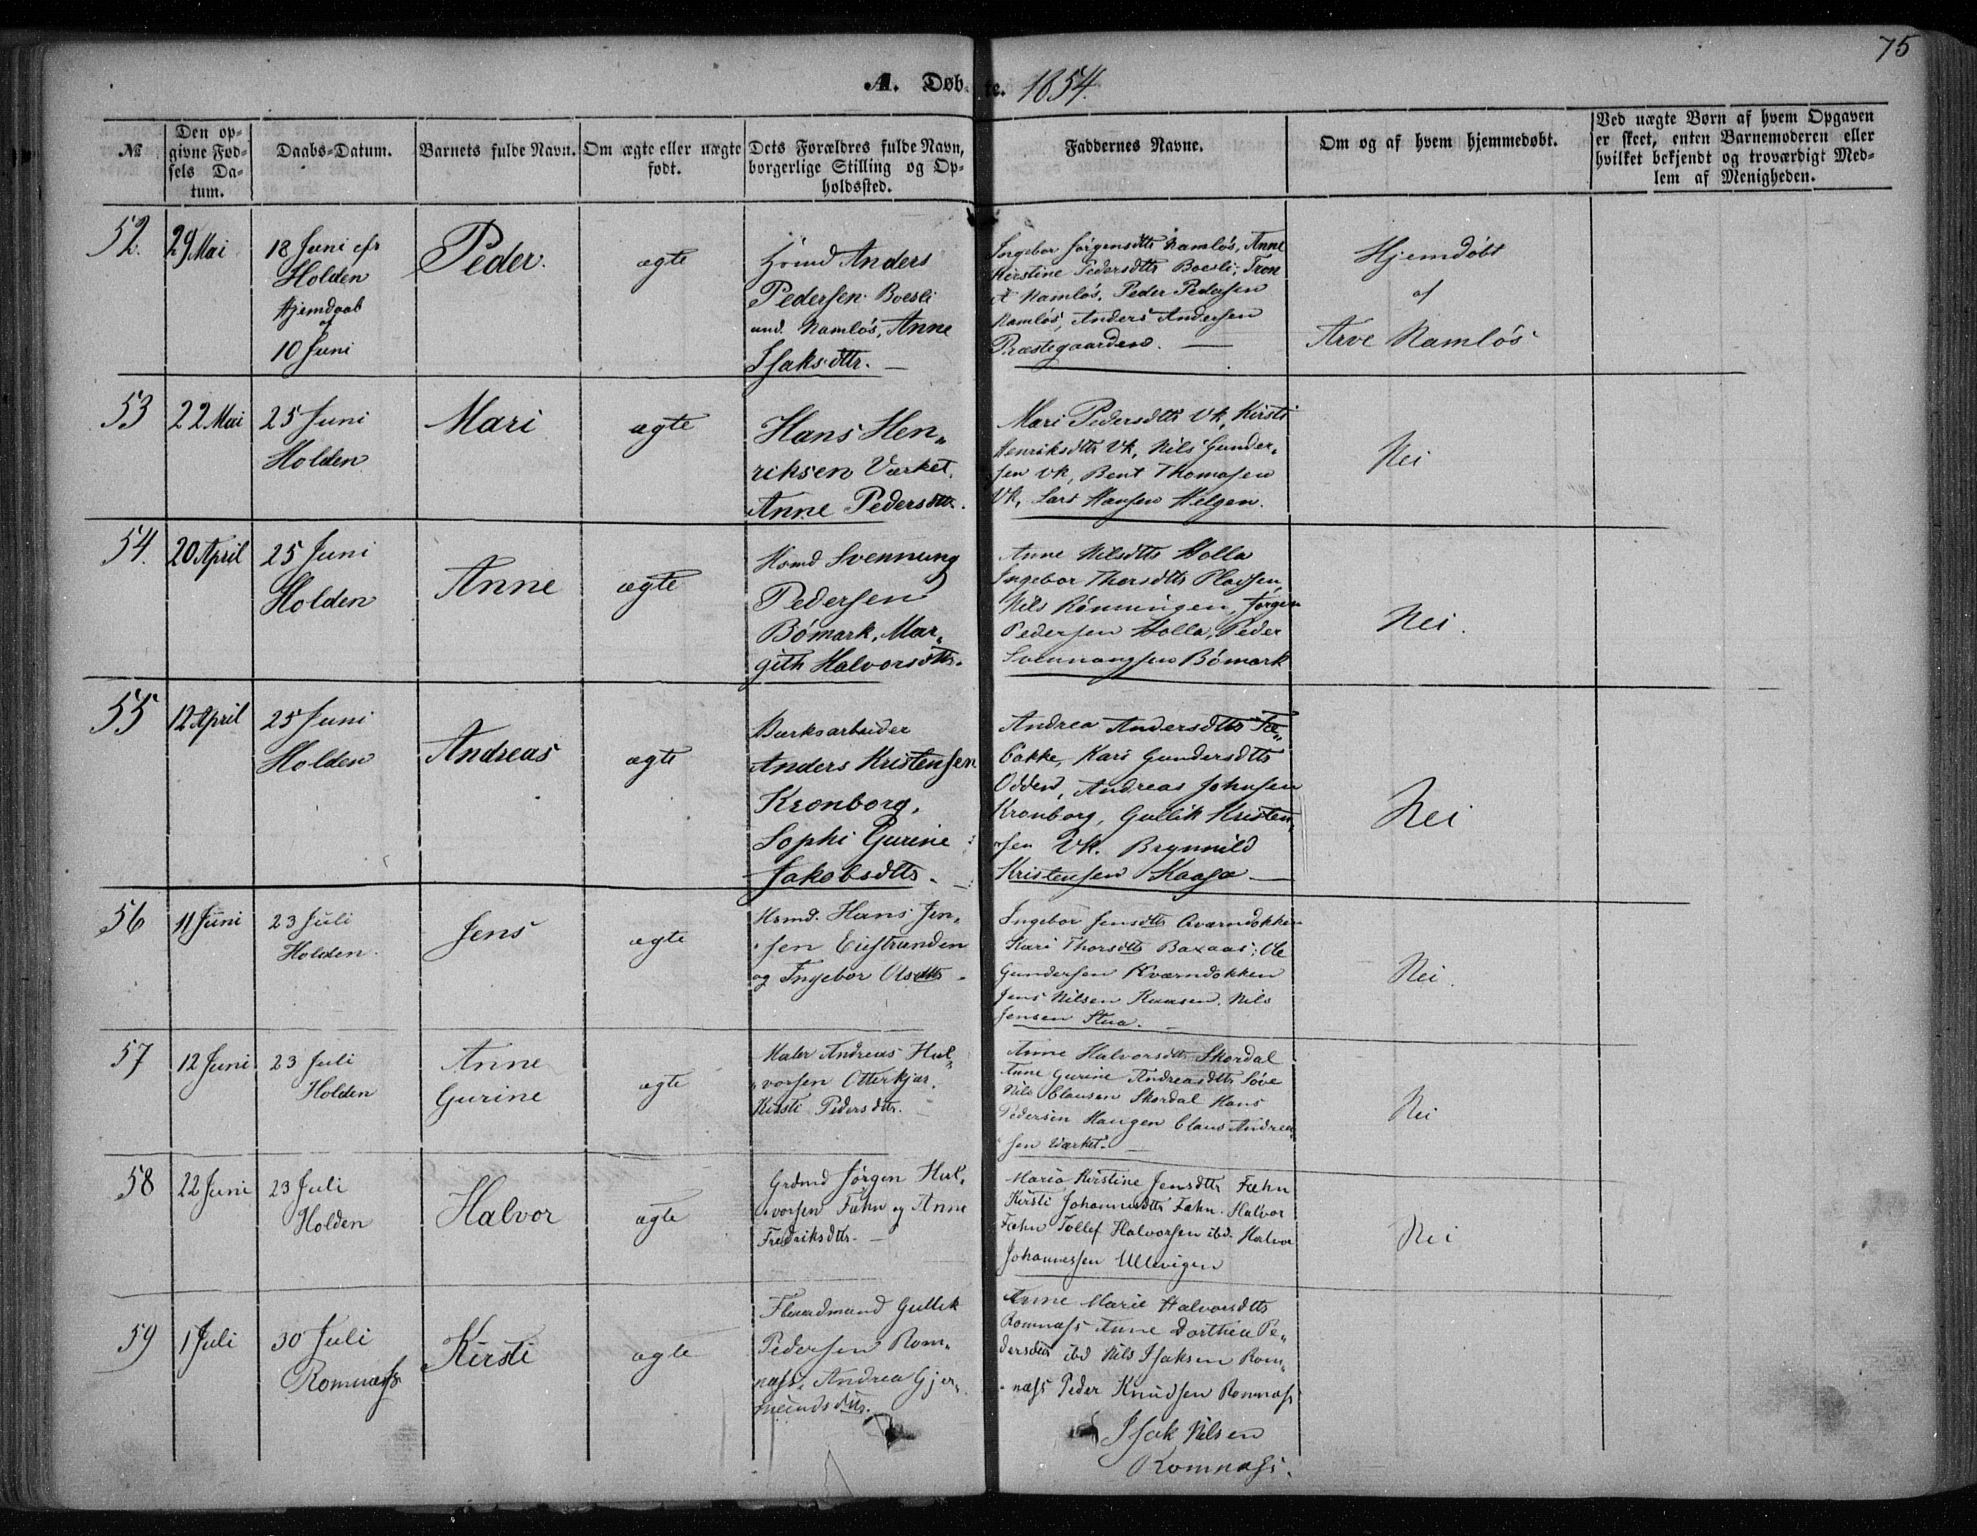 75
A. Døbte. 1854.
№
Den opgivne Fødsels Datum.
Daabs-Datum.
Barnets fulde Navn.
Om ægte eller uægte født.
Dets Forældres fulde Navn, borgerlige Stilling og Opholdssted.
Faddernes Navne.
Om og af hvem hjemmedøbt.
Ved uægte Børn af hvem Opgaven er skeet, enten Barnemoderen eller hvilket bekjendt og troværdigt Medlem af Menigheden.
52.
29 Mai
18 Juni
Holden
Hjemdaab
af
10 Juni
Peder.
ægte
Anders
Pedersen Boesli
und. Namløs, Anne
Isaksdttr. —
Ingebor Jørgensdttr Namløs, Anne
Kirstine Pedersdttr Boesli,
Namløs, Peder Pedersen
Namløs, Anders Andersen
Præstegaarden. —
Hjemdøbt
af
Arve Namløs
53
22 Mai
25 Juni
Holden
Mari
ægte
Hans Hen„
riksen Værket.
Anne Pedersdttr.
Mari Pedersdttr Vk, Kirsti
Henriksdttr Vk, Nils Gunder„
sen Vk, Bent Thomasen
Vk, Lars Hansen Helgen.
Nei
54.
20 April
25 Juni
Holden
Anne
ægte
Hsmd Svennung
Pedersen
Bömark, Mar„
gith Halvorsdttr.
Anne Nilsdttr Holla
Ingebor Thorsdttr Pladsen,
Nils Rönningen, Jørgen
Pedersen Holla, Peder
Svennungsen Bömark
Nei.
55
12 April
25 Juni
Holden
Andreas
ægte
Værksarbeider
Anders Kristensen
Kronborg,
Sophi Gurine
Jakobsdttr. —
Andrea Andersdttr Fæ„
bakke, Kari Gundersdttr
Odden, Andreas Johnsen
Kronborg, Gullik Kristen„
sen Vk. Brynnild
Kristensen Kaasa —
Nei
56
11 Juni
23 Juli
Holden.
Jens
ægte
Hsmd. Hans Jen„
sen Eiestranden
og Ingebor Olsdttr.
Ingebor Jensdttr Qværndokken
Kari Thorsdttr Baxaas; Ole
Gundersen Kværndokken
Jens Nilsen Kaasen. Nils
Jensen Stua. —
Nei.
57
12 Juni
23 Juli
Holden
Anne
Gurine
ægte
Maler Andreas Hal„
vorsen Otterkjær.
Kirsti Pedersdttr. —
Anne Halvorsdttr Skordal
Anne Gurine Andreasdttr Søve
Nils Clausen Skordal Hans
Pedersen Haugen Claus Andrea„
sen Værket. —
Nei
58
22 Juni
23 Juli
Holden
Halvor
ægte
Grdmd Jørgen Hal„
vorsen Fæhn og Anne
Fredriksdttr. —
Maria Kirstine Jensdttr Fæhn
Kirsti Johannesdttr Fæhn. Halvor
Fæhn Tollef Halvorsen ibd. Halvor
Johannessen Ullevigen
Nei
59
1 Juli
30 Juli
Romnæss
Kirsti
ægte
Gullik
Pedersen Rom„
næss, Andrea Gjer„
mundsdttr.
Anne Marie Halvorsdttr
Romnæss Anne Dorthea Pe„
dersdttr ibd Nils Isaksen Rom„
næss Peder Knudsen Romnæss
Isak Nilsen
Romnæss.